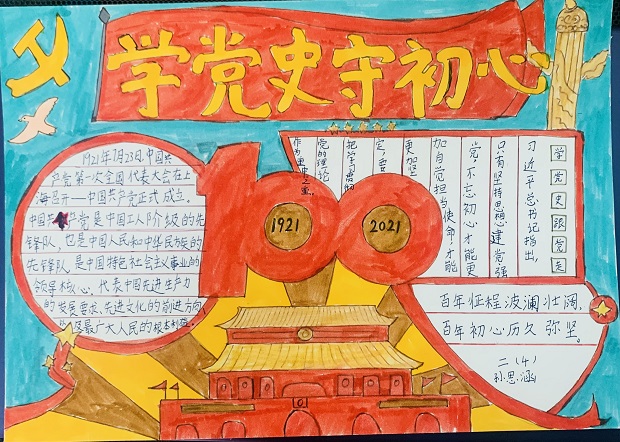 学党史守初心
1921年7月23日,中国共
产党第一次全国代表大会在上
海召开——中国共产党正式成立。
中国共产党是中国工人阶级的先
锋队,也是中国人民和中华民族的
先锋队,是中国特色社会主义事业的
领导核心,代表中国先进生产力
的发展要求,先进文化的前进方向
最广大人民的根本利益。
100
1921
2021
学党史跟党走
习近平总书记指出,
只有坚持思想建党强
党,不忘初心才能更
加自觉担当使命,才能
更加坚
定,要
把学习贯彻
党的理论
作为重中之重。
百年征程波澜壮阔,
百年初心历久弥坚。
二(4)
孙思涵